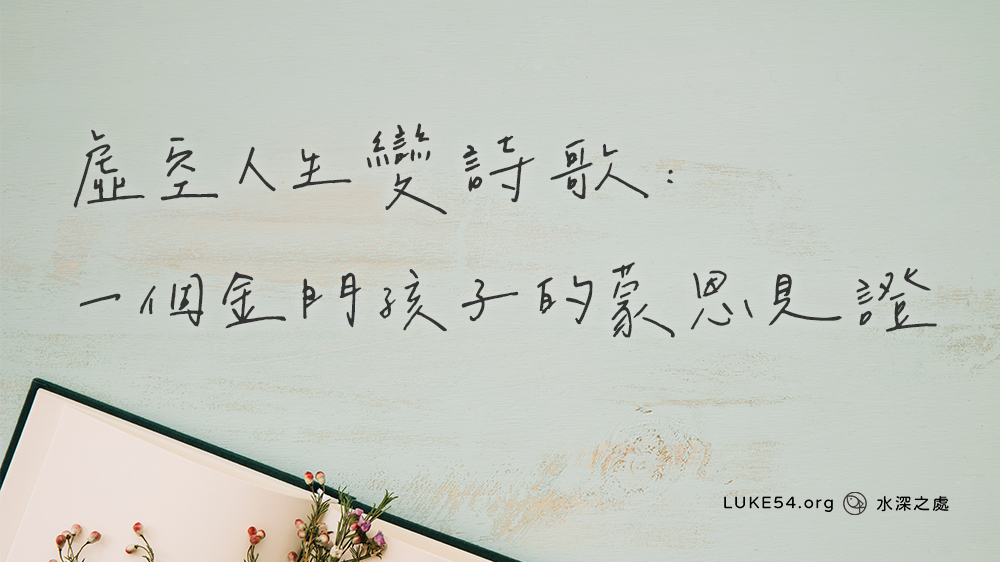 虛空人生變詩歌:
一個金門孩子的蒙恩見證
LUKE54.org 水深之處